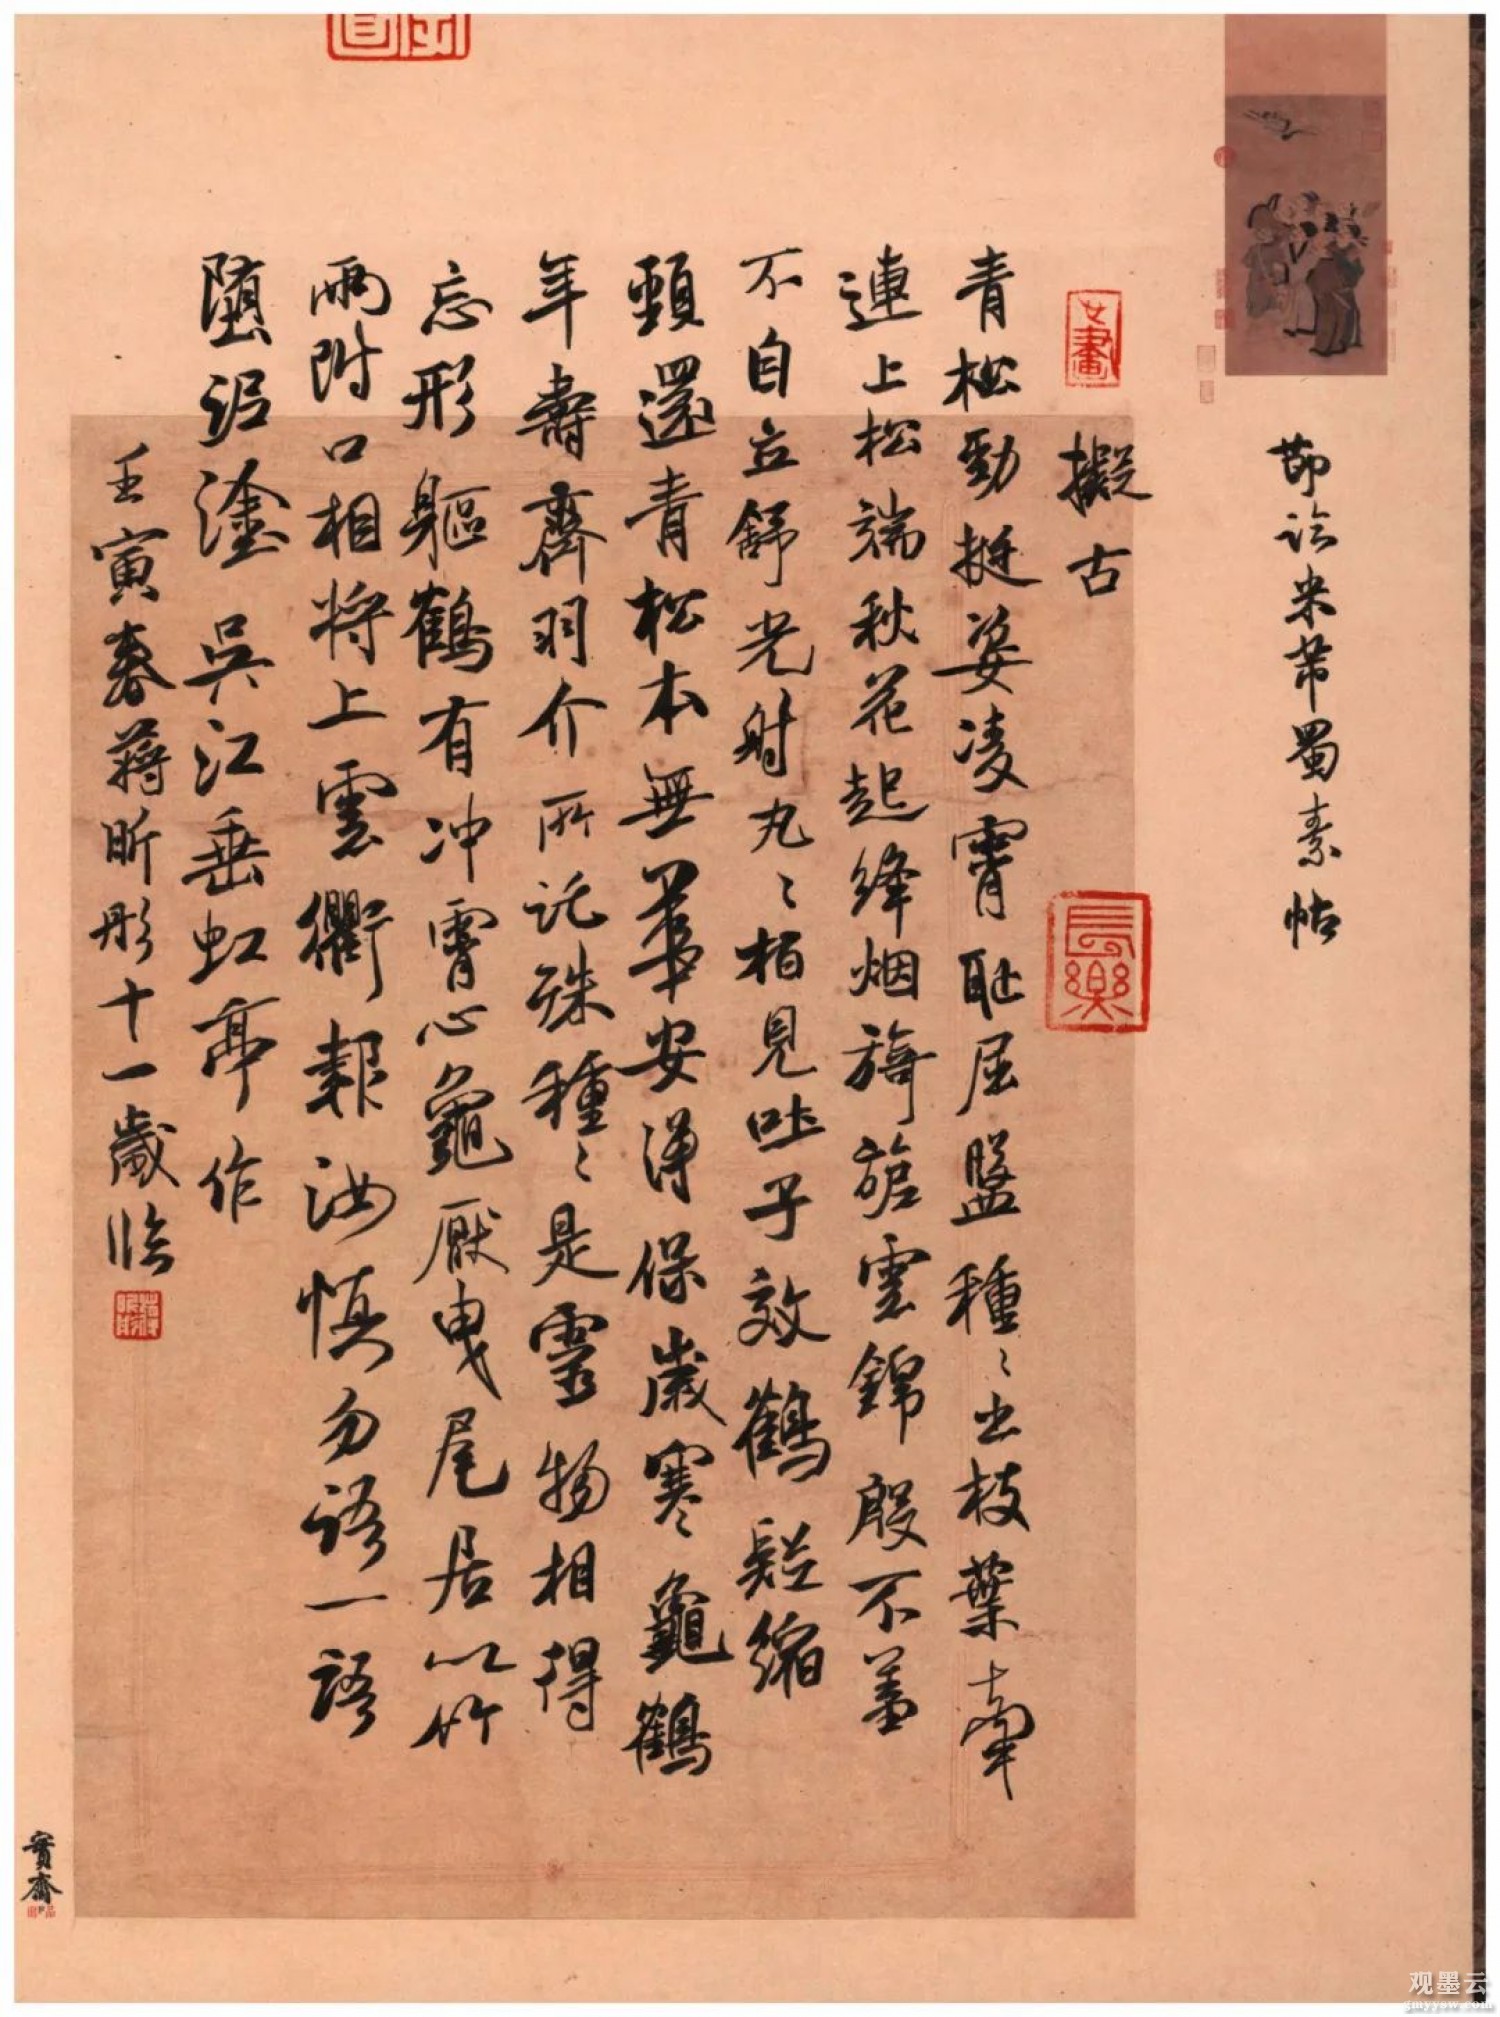 節臨米芾蜀素帖
擬古
青松勁挺姿凌霄耻屈盤種〻出枝葉牽
連上松端秋花起絳烟旖旎雲錦殷不羞
不自立舒光射丸〻柏見吐子效鶴疑縮
頸還青松本無華安得保歲寒〻龜鶴
年壽齊羽介所託殊種〻是靈物相得
忘形軀鶴有冲霄心龜厭曳尾居以竹
兩附口相將上雲衢報汝慎勿語一語
墮泥塗 吳江垂虹亭作
壬寅春蔣昕彤十一歲臨
長樂
寶齋
观墨云
gmyyaw.com